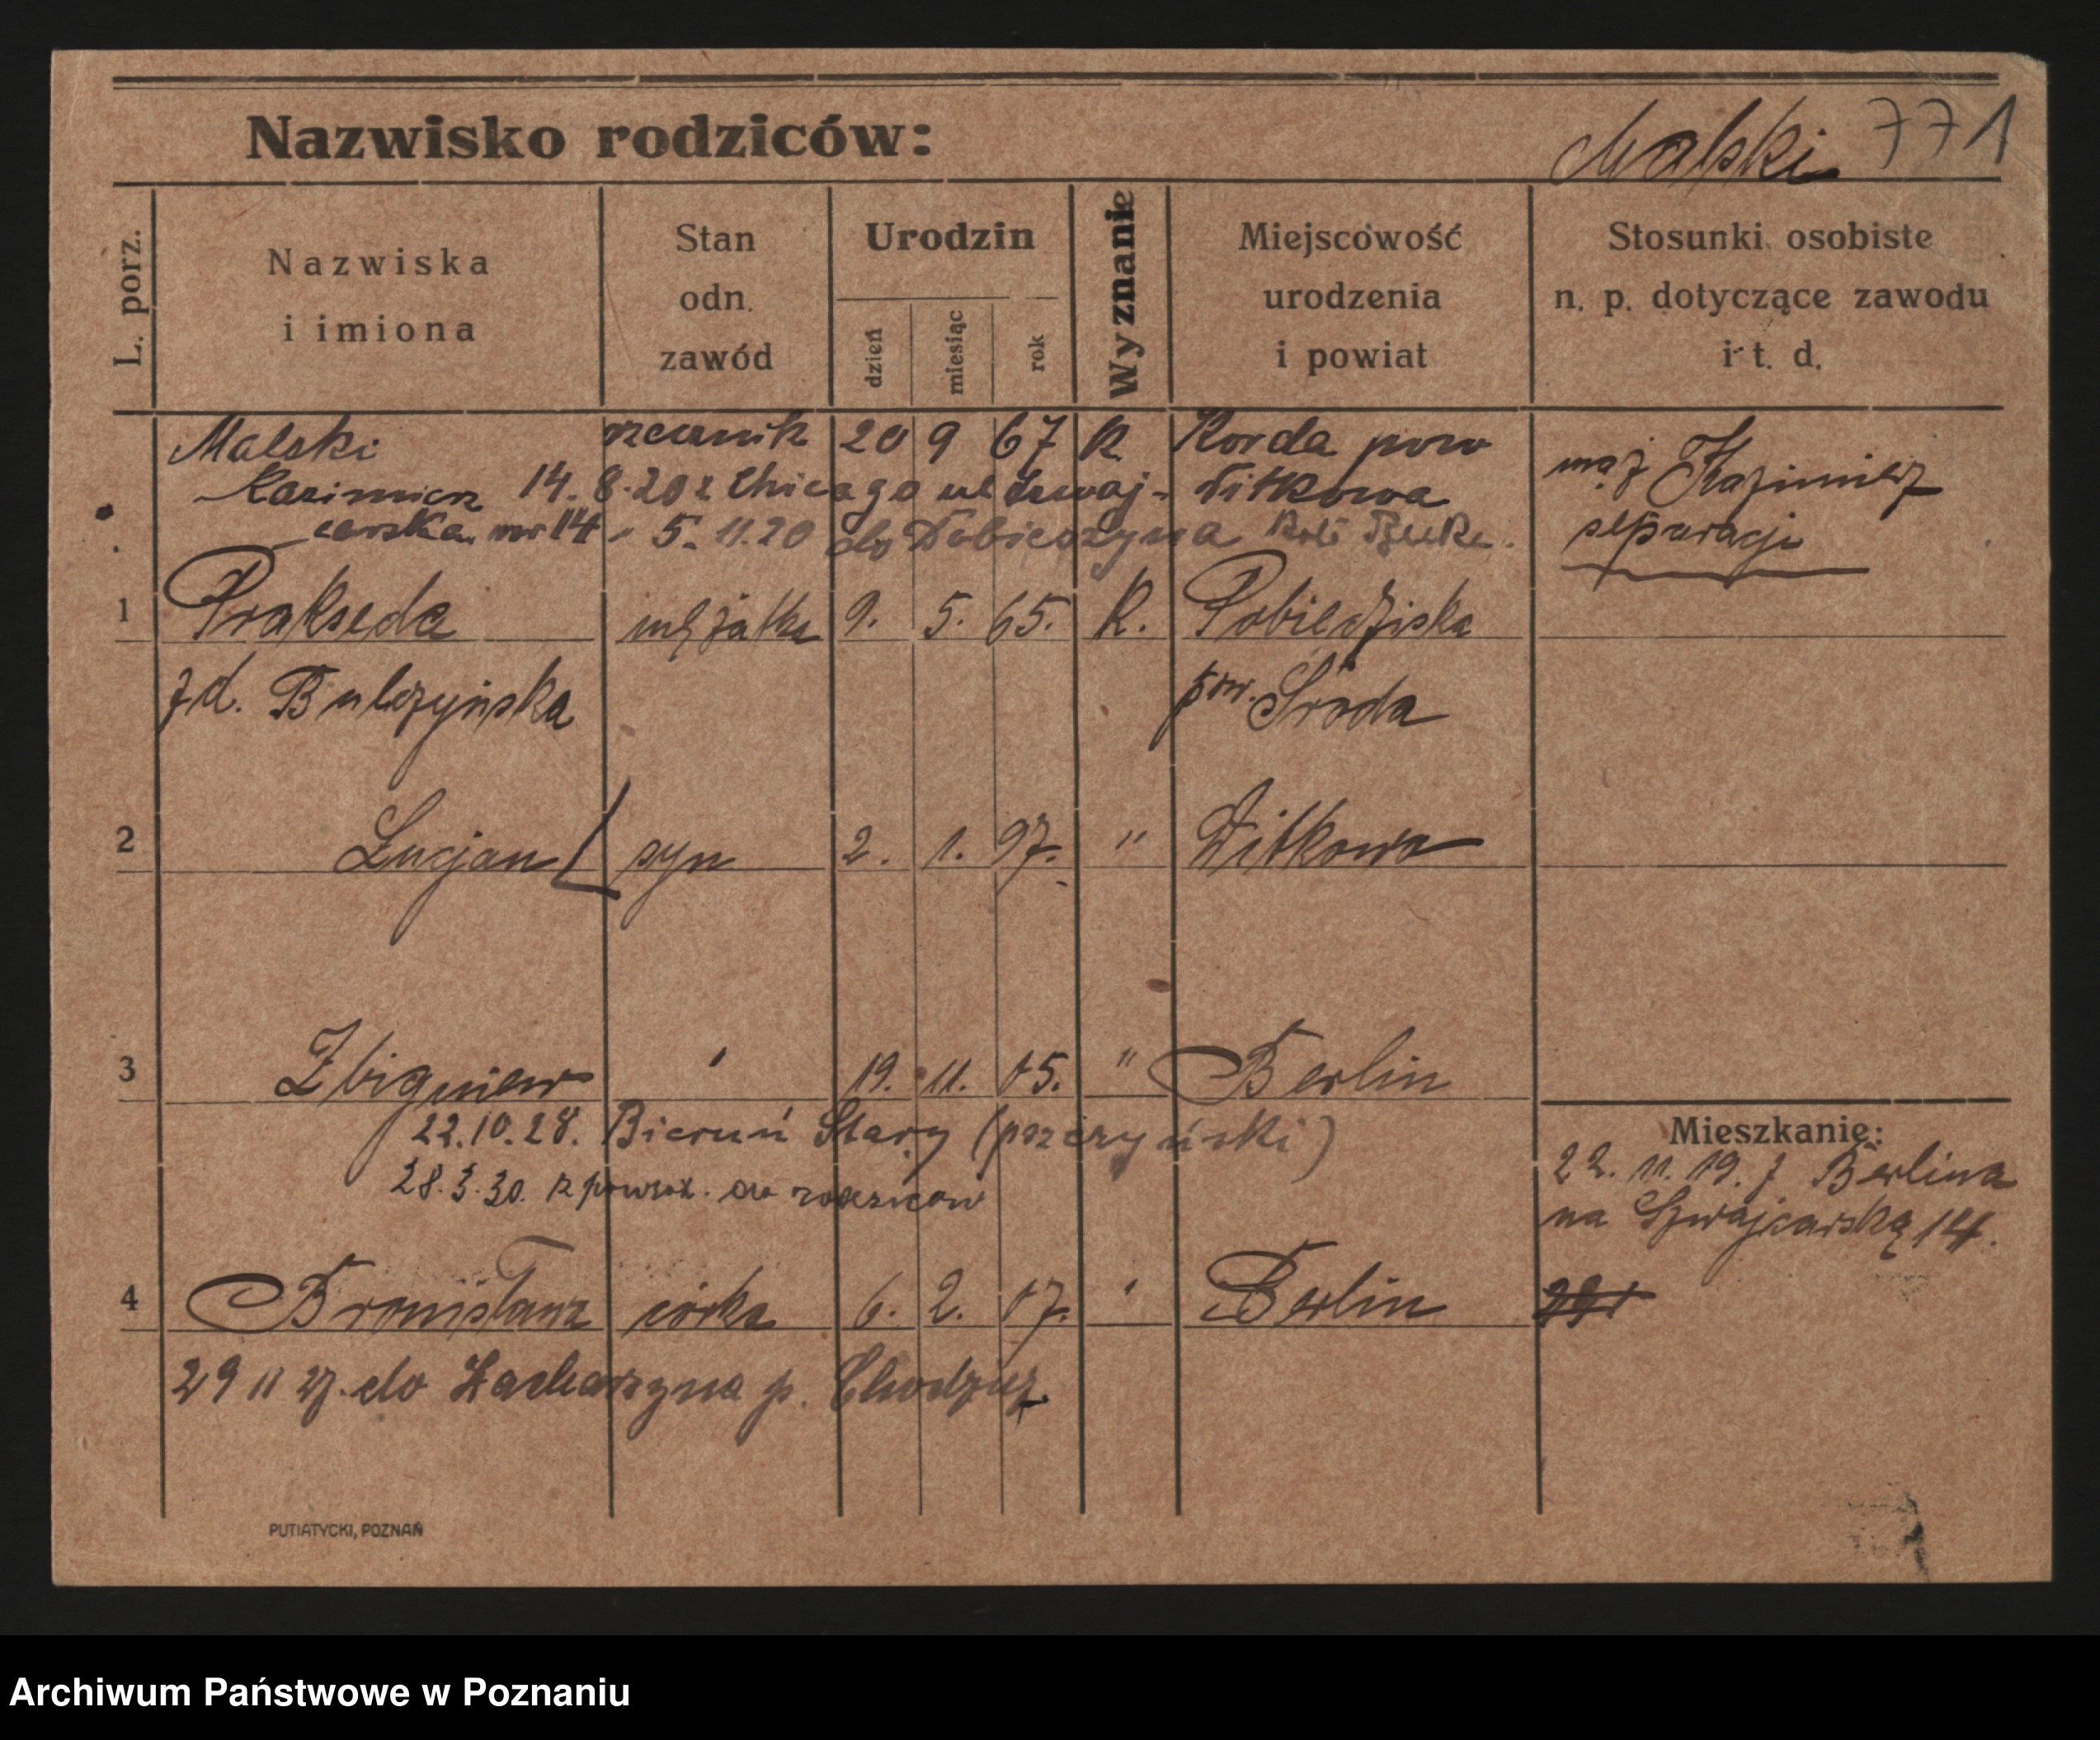 Nazwisko rodziców: Malski 771
L. porz.
Nazwiska i imiona
Stan odn. zawód
Urodzin
dzień miesiąc rok
Wyznanie
Miejscowość urodzenia i powiat
Stosunki osobiste n. p. dotyczące zawodu i t. d.
Malski 20 9 67 R. Korda pow
Kazimierz 14. 8. 20 z Chicago ul Szwaj- Witkowa
carska nr 14 - 5. 11. 20 do
mąż Kazimierz
separacji
1 Prakseda mężatka 9. 5. 65. R. Pobiedziska
zd. Bulczyńska pow. Środa
2 Lucjan syn 2. 1. 97. " Witkowo
3 Zbigniew " 19. 11. 05. " Berlin
22.10.28. Bieruń Stary (pszczyński)
28.3.30. z powrot. do rodziców
Mieszkanie:
22. 11. 19. z Berlina
na Szwajcarską 14.
4 Bronisława córka 6. 2. 07. " Berlin
29 11 27. do Zacharzyna p. Chodzież
PUTIATYCKI, POZNAŃ
Archiwum Państwowe w Poznaniu